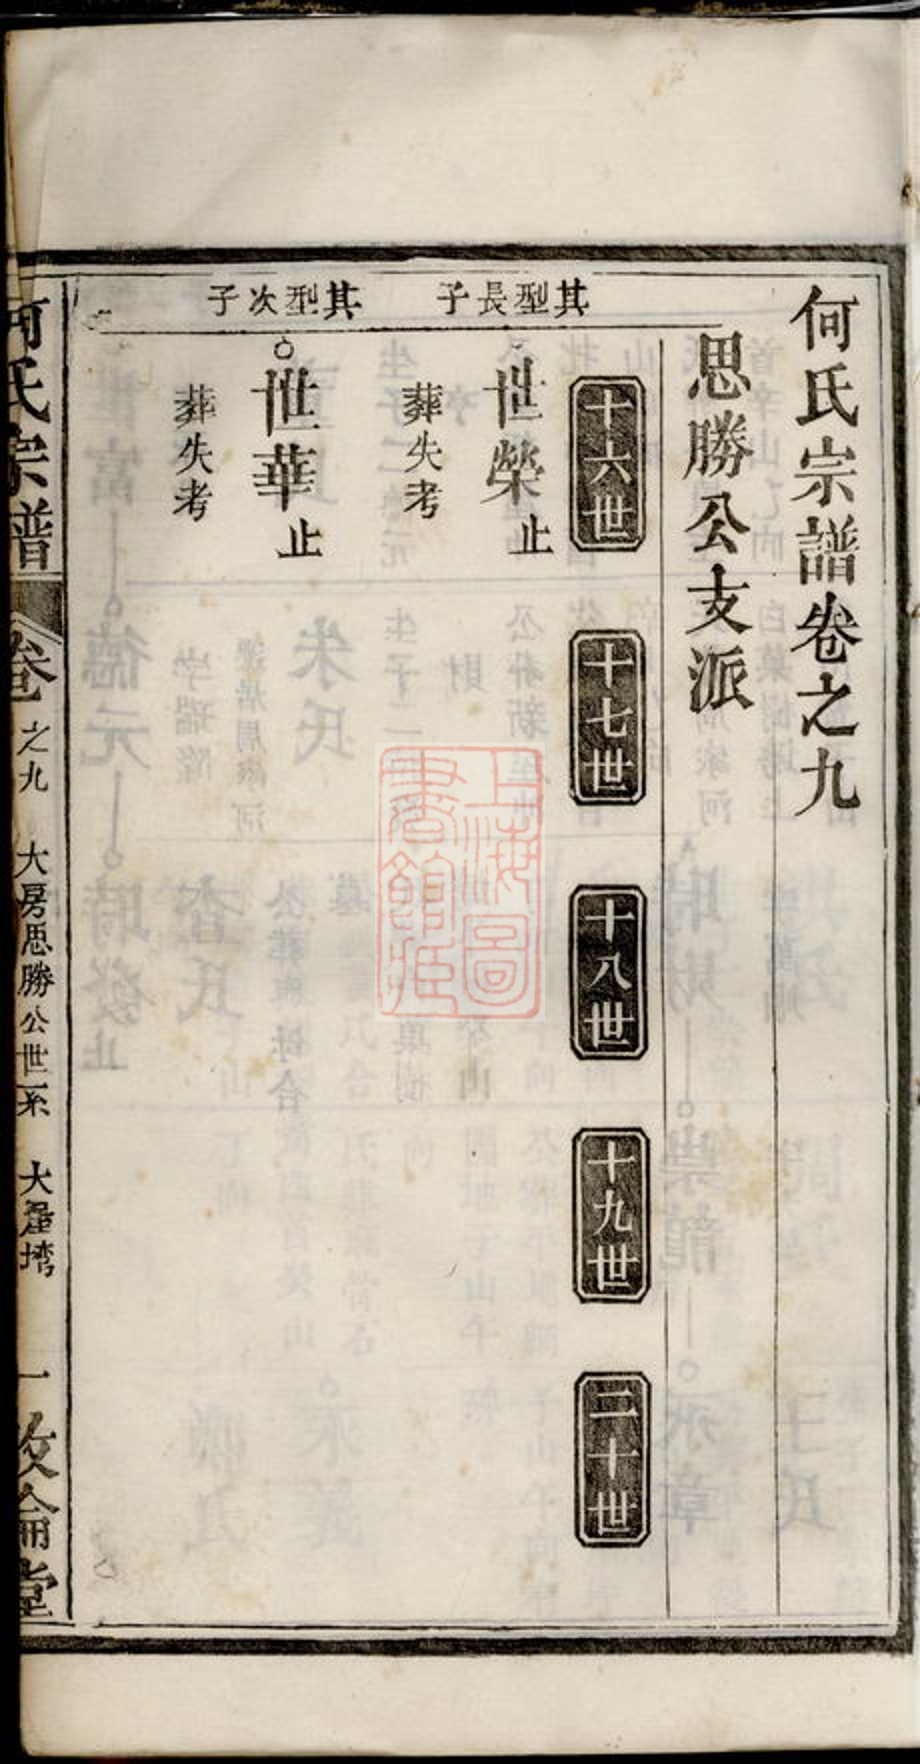 何氏宗譜卷之九
思勝公支派
十六世
十七世
十八世
十九世
二十世
其型長子
世榮止
葬失考
其型次子
世華止
葬失考
何氏宗譜
卷之九
大房思勝公世系
一
上海圖
書館藏